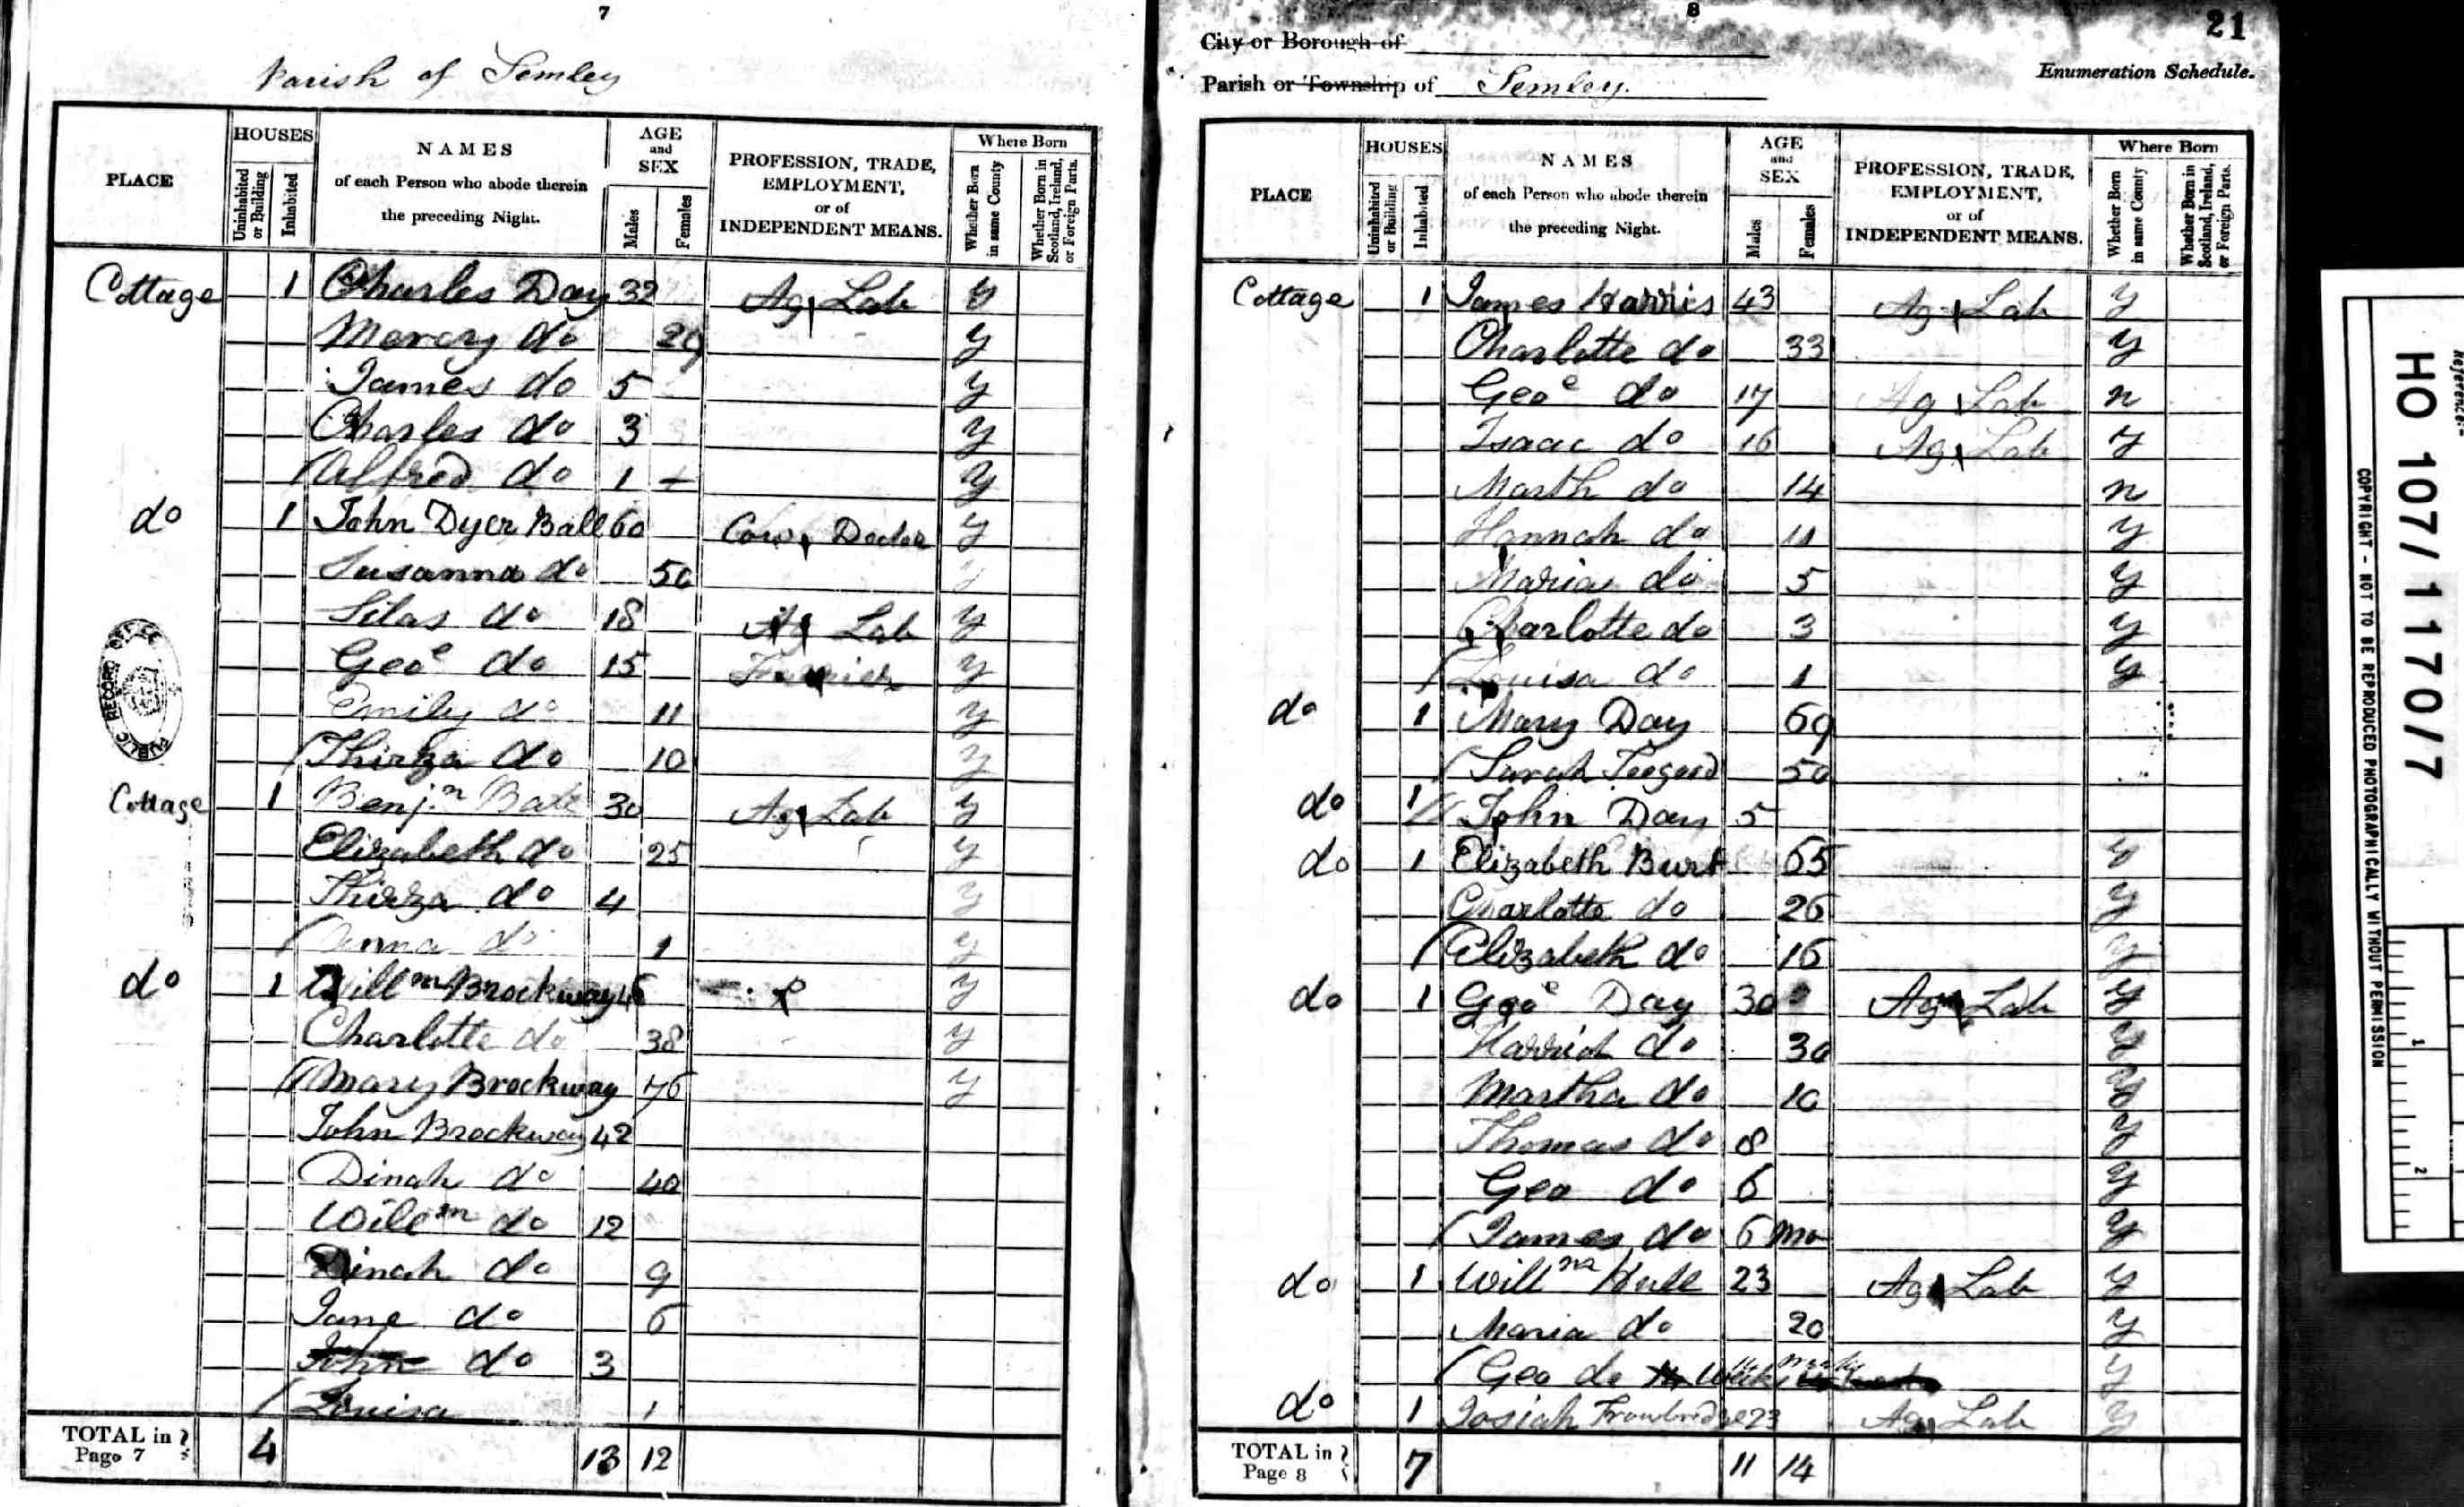 7
Parish of Semley
PLACE
HOUSES
Uninhabited or Building
Inhabited
NAMES
of each Person who abode therein
the preceding Night.
AGE
and
SEX
Males
Females
PROFESSION, TRADE,
EMPLOYMENT,
or of
INDEPENDENT MEANS.
Where Born
Whether Born in same County
Whether Born in Scotland, Ireland, or Foreign Parts.
Cottage 1 Charles Day 32 Ag Lab y
Mercy do 29 y
James do 5 y
Charles do 3 y
Alfred do 1 y
do 1 John Dyer Ball 60 Cow Doctor y
Susanna do 50 y
Silas do 18 Ag Lab y
Geoe do 15 y
Emily do 11 y
Thirza do 10 y
Cottage 1 Benjn 30 Ag Lab y
Elizabeth do 25 y
Thirza do 4 y
Anna do 1 y
do 1 Willm Brockway y
Charlotte do 38 y
Mary Brockway 76 y
John Brockway 42
Dinah do 40
Willm do 12
Dinah do 9
Jane do 6
John do 3
Louisa 1
TOTAL in Page 7 4 13 12
8
21
City or Borough of
Enumeration Schedule.
Parish or Township of Semley.
PLACE
HOUSES
Uninhabited or Building
Inhabited
NAMES
of each Person who abode therein
the preceding Night.
AGE
and
SEX
Males
Females
PROFESSION, TRADE,
EMPLOYMENT,
or of
INDEPENDENT MEANS.
Where Born
Whether Born in same County
Whether Born in Scotland, Ireland, or Foreign Parts.
Cottage 1 James Harris 43 Ag Lab y
Charlotte do 33 y
Geoe do 17 Ag Lab n
Isaac do 16 Ag Lab y
Marth do 14 n
Hannah do 11 y
Maria do 5 y
Charlotte do 3 y
Louisa do 1 y
do 1 Mary Day 69
Sarah 50
do 1 John Day 5
do 1 Elizabeth Burt 65 y
Charlotte do 26 y
Elizabeth do 16 y
do 1 Geoe Day 30 Ag Lab y
Harriet do 30 y
Martha do 10 y
Thomas do 8 y
Geo do 6 y
James do 6 mo y
do 1 Willm Hull 23 Ag Lab y
Maria do 20 y
Geo do y
do 1 Josiah Trowbridge 23 Ag Lab y
TOTAL in Page 8 7 11 14
PUBLIC RECORD OFFICE
Reference:-
HO 107/1170/7
COPYRIGHT - NOT TO BE REPRODUCED PHOTOGRAPHICALLY WITHOUT PERMISSION
1
2